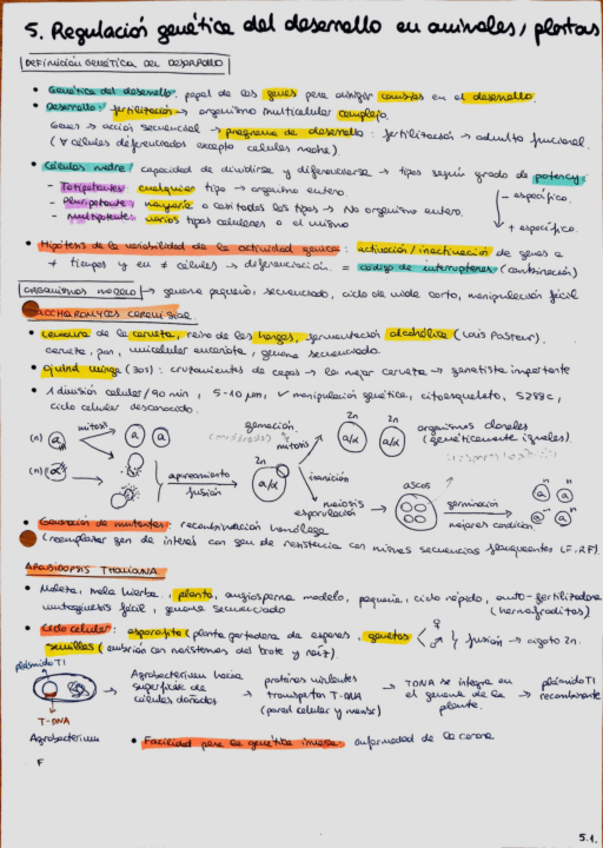 5. Regulación genética del desarrollo en animales/plantas
DEFINICIÓN GENÉTICA DEL DESARROLLO
• Genética del desarrollo: papel de los genes para dirigir cambios en el desarrollo.
• Desarrollo: fertilización → organismo multicelular complejo.
Genes → acción secuencial → programa de desarrollo: fertilización → adulto funcional.
(∀ células diferenciadas excepto células madre).
• Células madre: capacidad de dividirse y diferenciarse → tipos según grado de potency:
- Totipotentes: cualquier tipo → organismo entero.
- específico.
- Pluripotentes: mayoría o casi todos los tipos → No organismo entero.
- Multipotentes: varios tipos celulares o el mismo
+ específico.
• Hipótesis de la variabilidad de la actividad génica: activación/inactivación de genes a
≠ tiempos y en ≠ células → diferenciación. = código de interruptores (combinación)
ORGANISMOS MODELO → genoma pequeño, secuenciado, ciclo de vida corto, manipulación fácil
SACCHAROMYCES CEREVISIAE.
• Levadura de la cerveza, reino de los hongos, fermentación alcohólica (Louis Pasteur).
cerveza, pan, unicelular eucariota, genoma secuenciado.
• Ojvind Winge (30s): cruzamientos de cepas → la mejor cerveza → genetista importante
• 1 división celular/90 min, 5-10 μm, ✓ manipulación genética, citoesqueleto, S288c,
ciclo celular desconocido.
mitosis
gemación.
2n
2n
organismos clonales
(genéticamente iguales).
(n) a
a
a
mitosis
a/α
a/α
(n) α
apareamiento
fusión
2n
a/α
inanición
meiosis
esporulación
ascas
germinación
mejores condiciones
n
a
n
a
n
n
• Generación de mutantes: recombinación homóloga
(reemplazar gen de interés con gen de resistencia con mismas secuencias flanqueantes (F, RF).
ARABIDOPSIS THALIANA
• Maleza, mala hierba, planta, angiosperma modelo, pequeña, ciclo rápido, auto-fertilizadora
mutagénesis fácil, genoma secuenciado
(hermafroditas)
• Ciclo celular: esporofito (planta portadora de esporas, gametos < ♀ ♂ } fusión → cigoto 2n.
semillas (embrión con meristemos del brote y raíz).
plásmido TI
T-DNA
Agrobacterium
→ Agrobacterium hacia
superficie de
células dañadas
→ proteínas virulentes
transportan T-DNA
(pared celular y membr)
→ TDNA se integra en
el genoma de la
planta.
→ plásmido TI
recombinante
• Facilidad para la genética inversa: enfermedad de la corona
F
5.1.